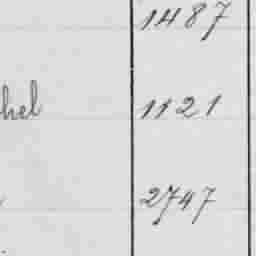 1487
hel 1121
2747